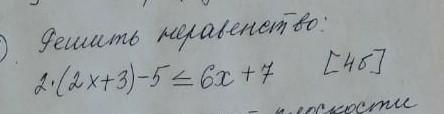 ) Решить неравенство:
2·(2x+3)-5 ≤ 6x+7 [4б]
плоскости